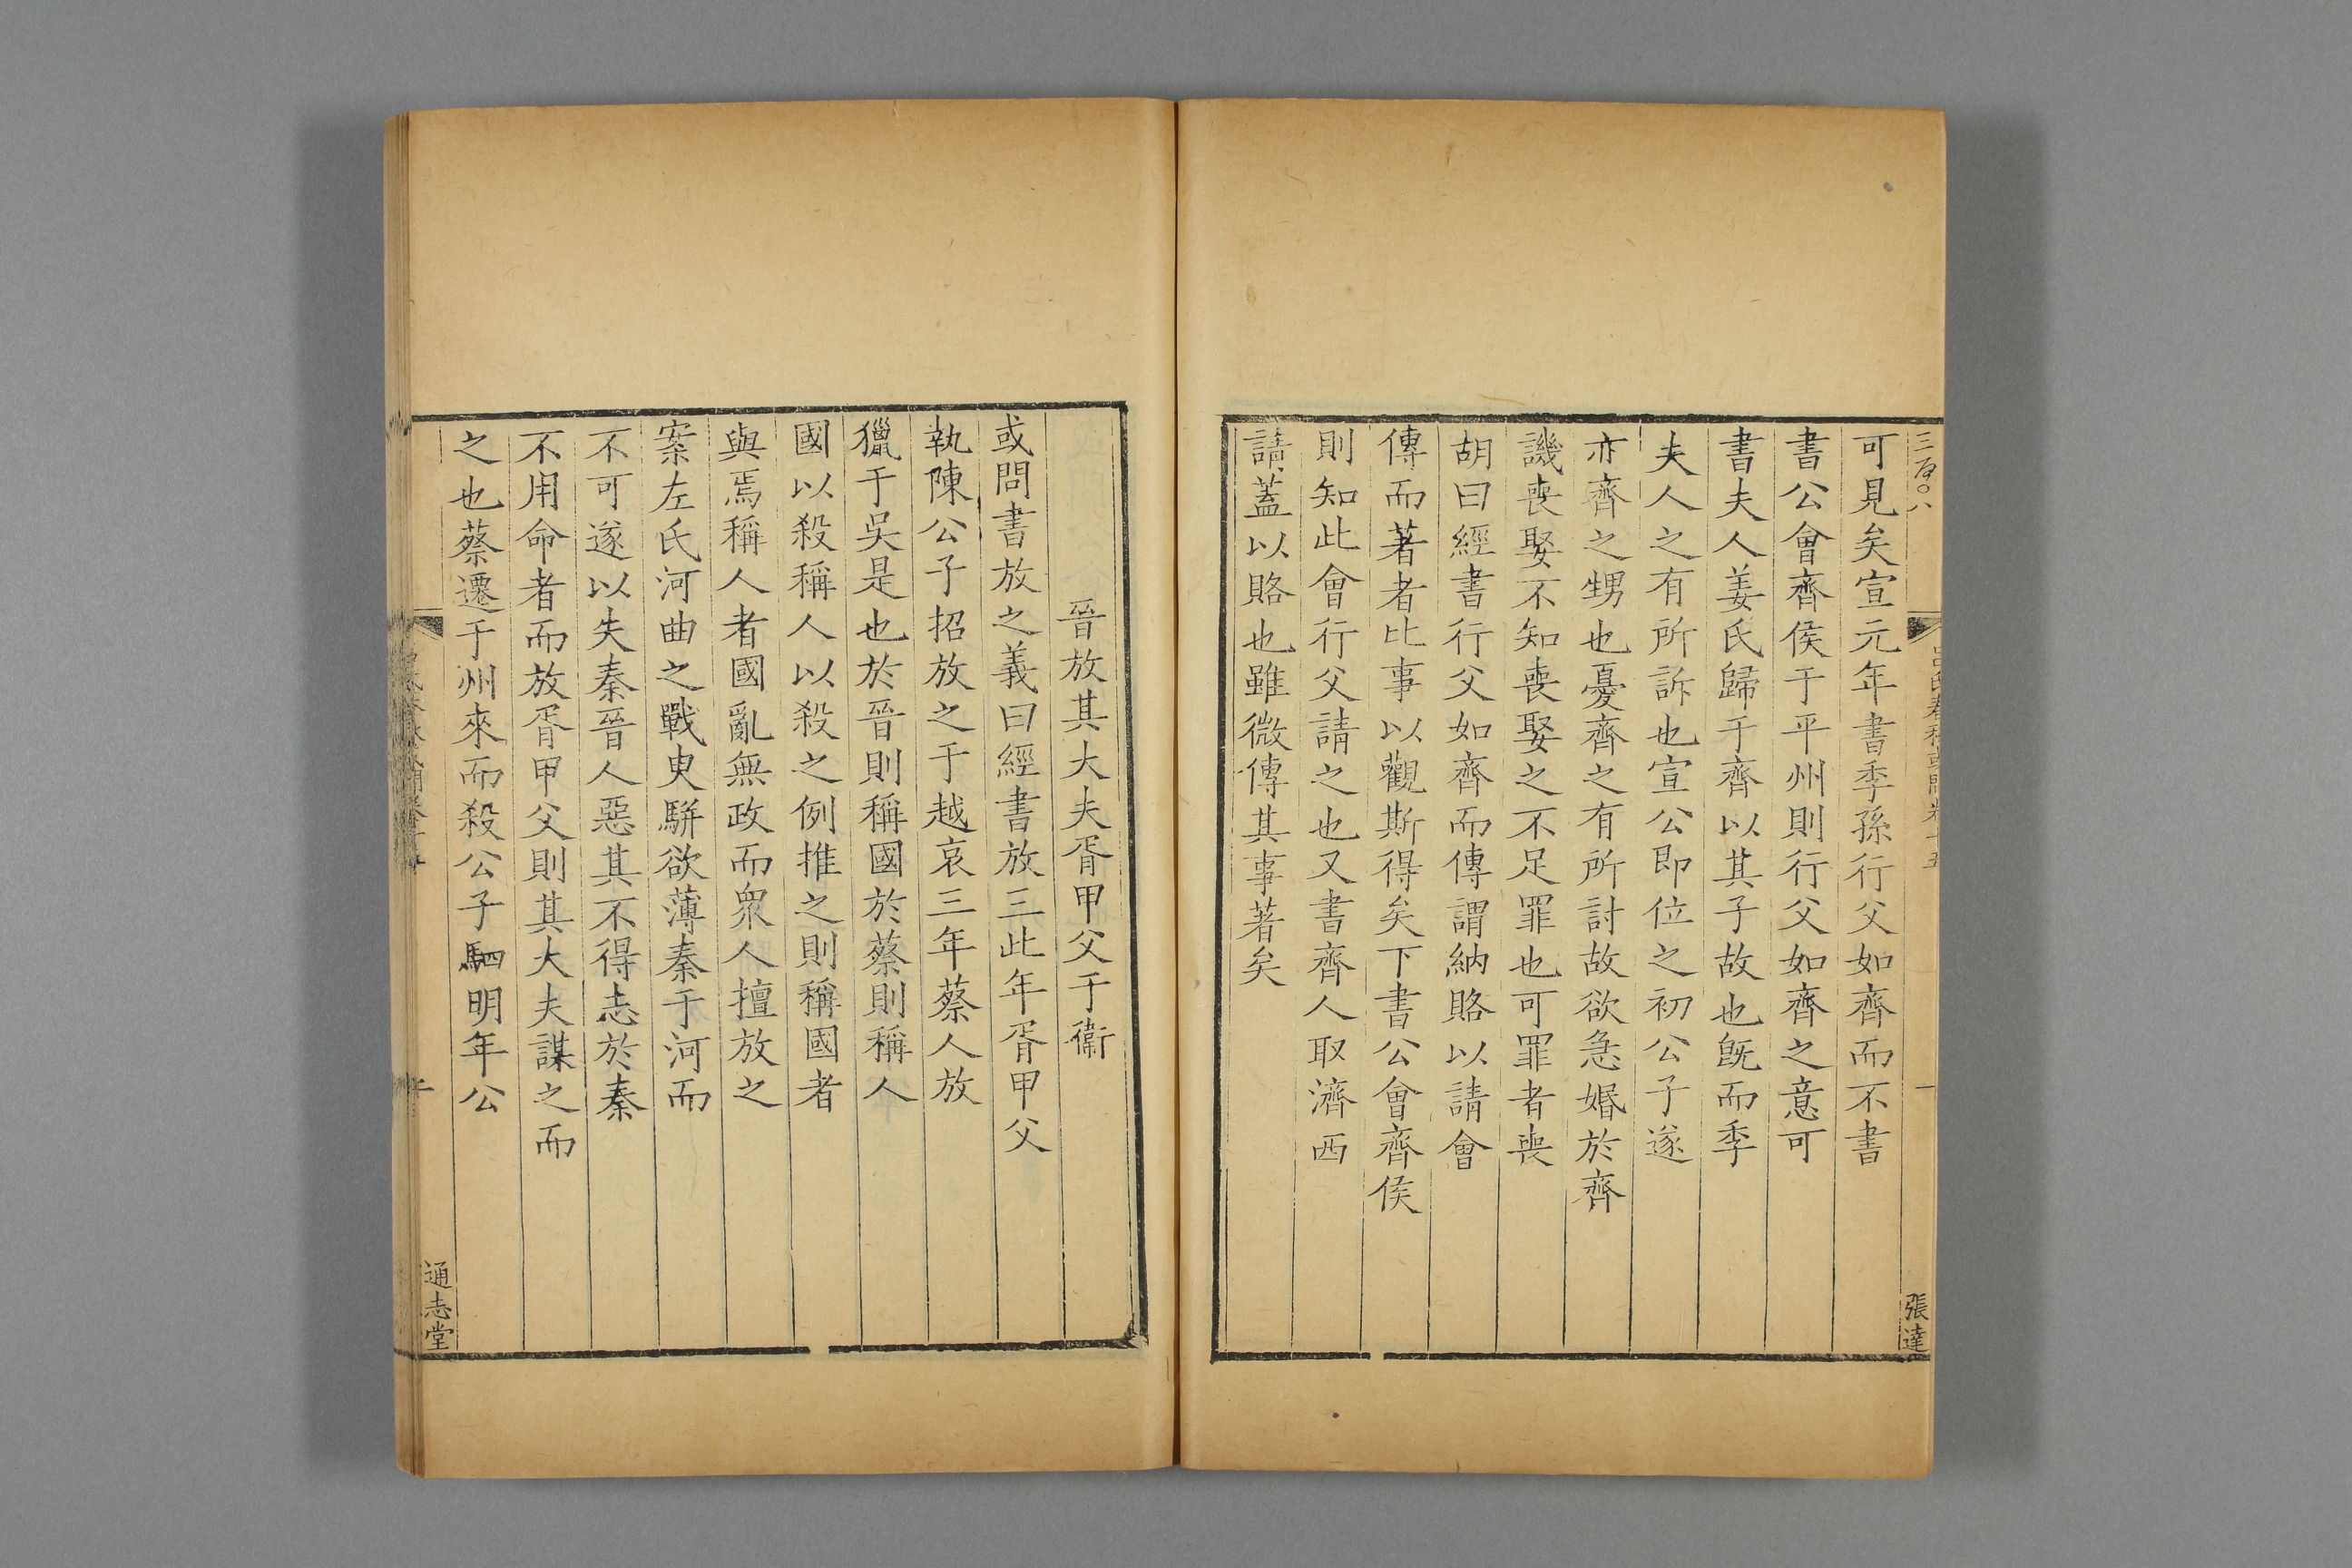 三百〇八
呂氏春秋或問卷十五
一
張達
可見矣宣元年書季孫行父如齊而不書
書公會齊侯于平州則行父如齊之意可
書夫人姜氏歸于齊以其子故也旣而季
夫人之有所訴也宣公即位之初公子遂
亦齊之甥也憂齊之有所討故欲急婚於齊
譏喪娶不知喪娶之不足罪也可罪者喪
胡曰經書行父如齊而傳謂納賂以請會
傳而著者比事以觀斯得矣下書公會齊侯
則知此會行父請之也又書齊人取濟西
請蓋以賂也雖微傳其事著矣
晉放其大夫胥甲父于衞
或問書放之義曰經書放三此年胥甲父
執陳公子招放之于越哀三年蔡人放
獵于吳是也於晉則稱國於蔡則稱人
國以殺稱人以殺之例推之則稱國者
與焉稱人者國亂無政而衆人擅放之
案左氏河曲之戰臾駢欲薄秦于河而
不可遂以失秦晉人惡其不得志於秦
不用命者而放胥甲父則其大夫謀之而
之也蔡遷于州來而殺公子駟明年公
通志堂